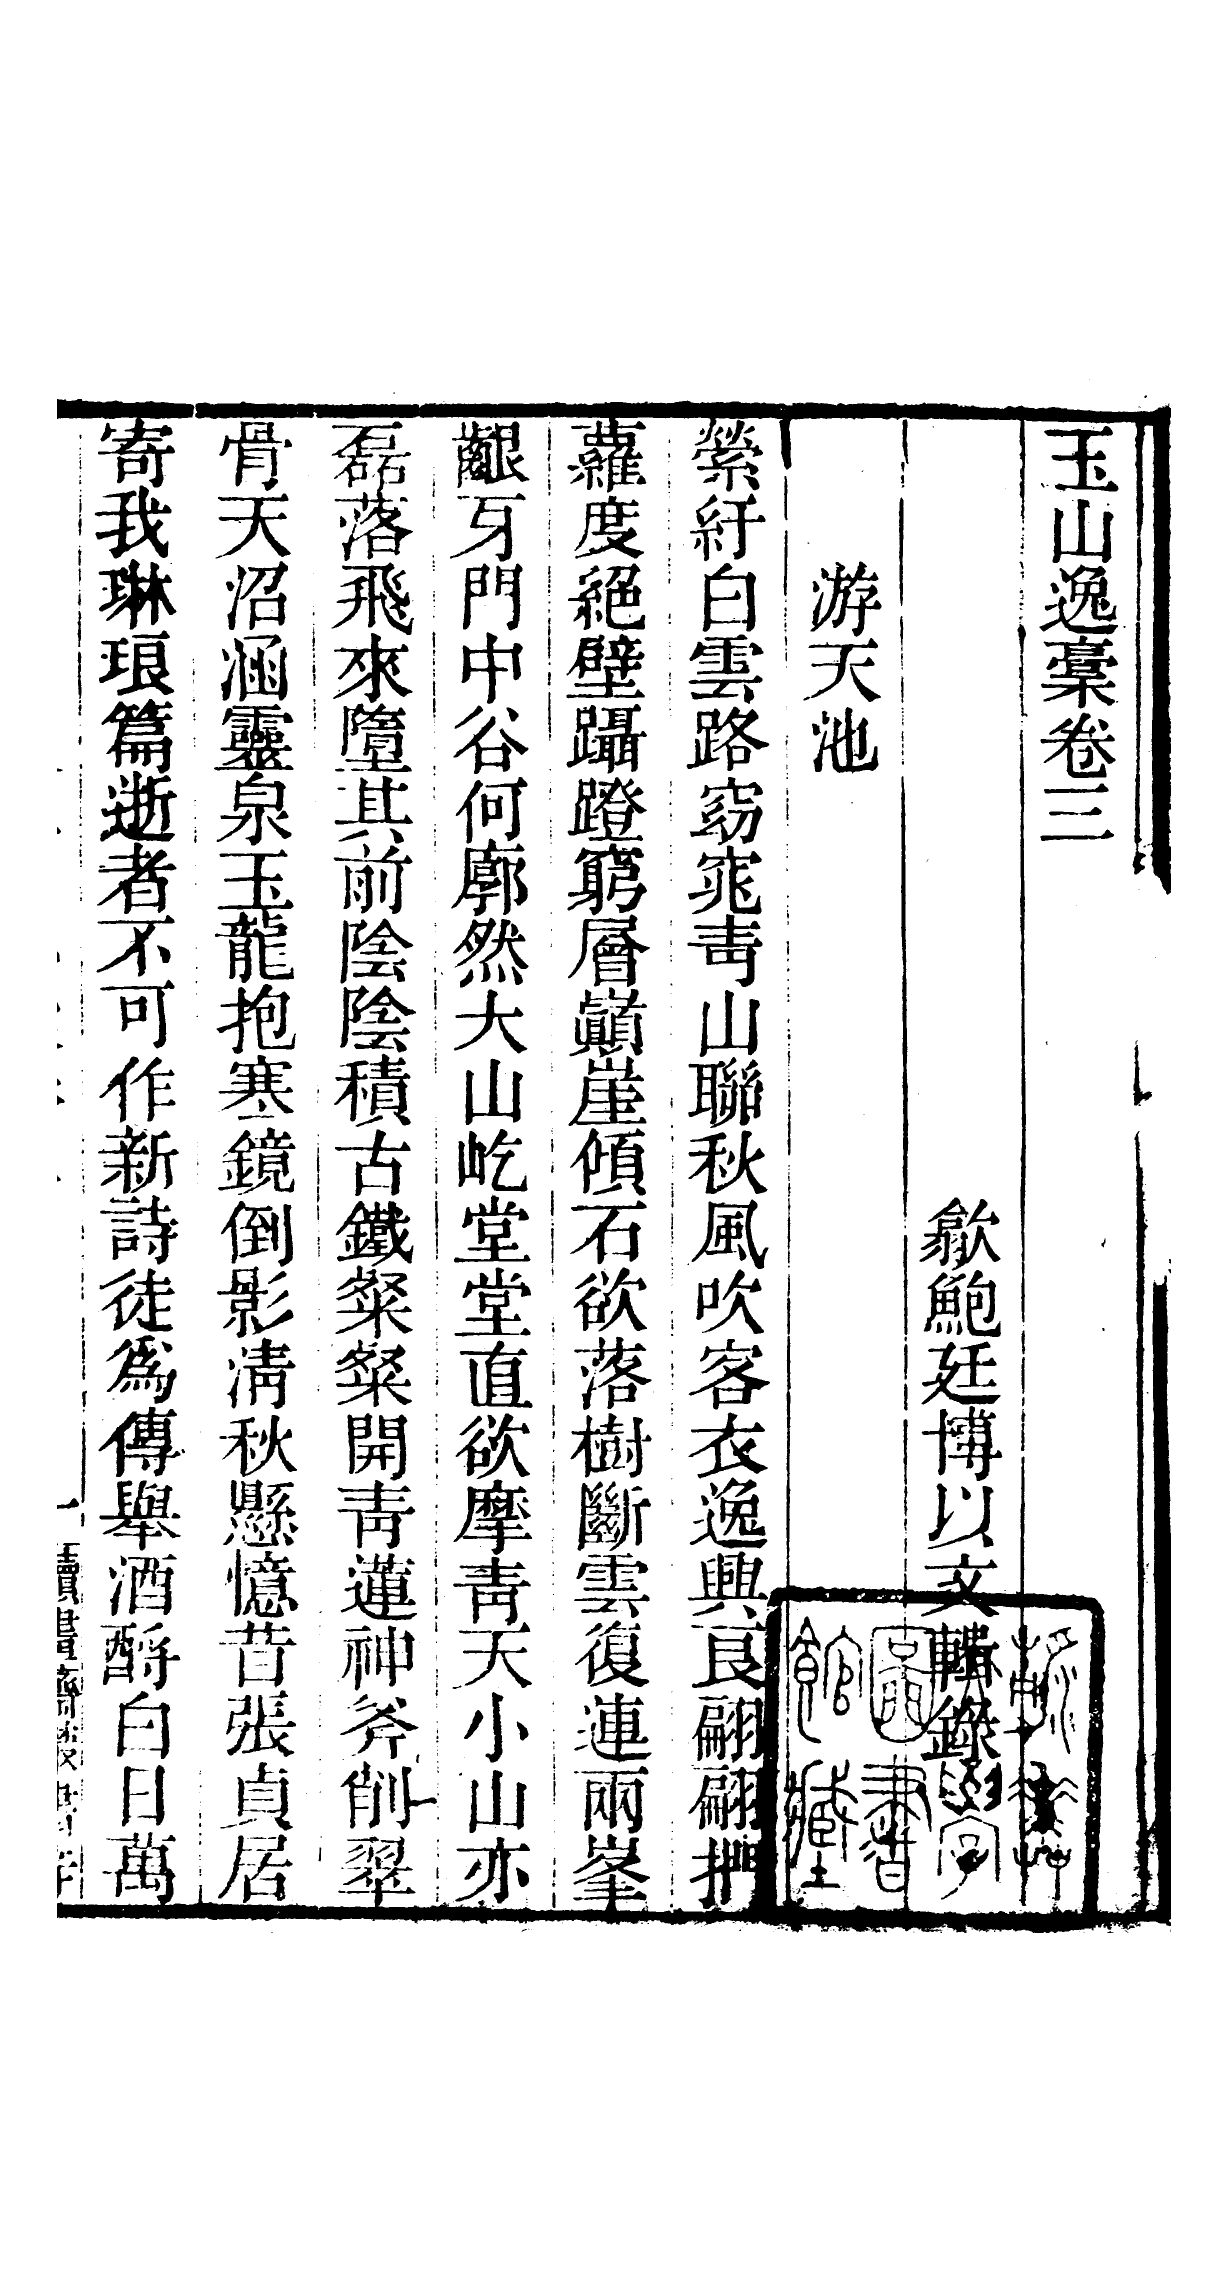 玉山逸稾卷三
歙鮑廷博以文輯錄
游天池
縈紆白雲路窈窕靑山聯秋風吹客衣逸興良翩翩捫
蘿度絕壁躡蹬窮層巔崖傾石欲落樹斷雲復連兩峯
齦牙門中谷何廓然大山屹堂堂直欲摩靑天小山亦
磊落飛來墮其前陰陰積古鐵粲粲開靑蓮神斧削翠
骨天沼涵靈泉玉龍抱寒鏡倒影淸秋懸憶昔張貞居
寄我琳琅篇逝者不可作新詩徒爲傳舉酒酹白日萬
圖書
館藏